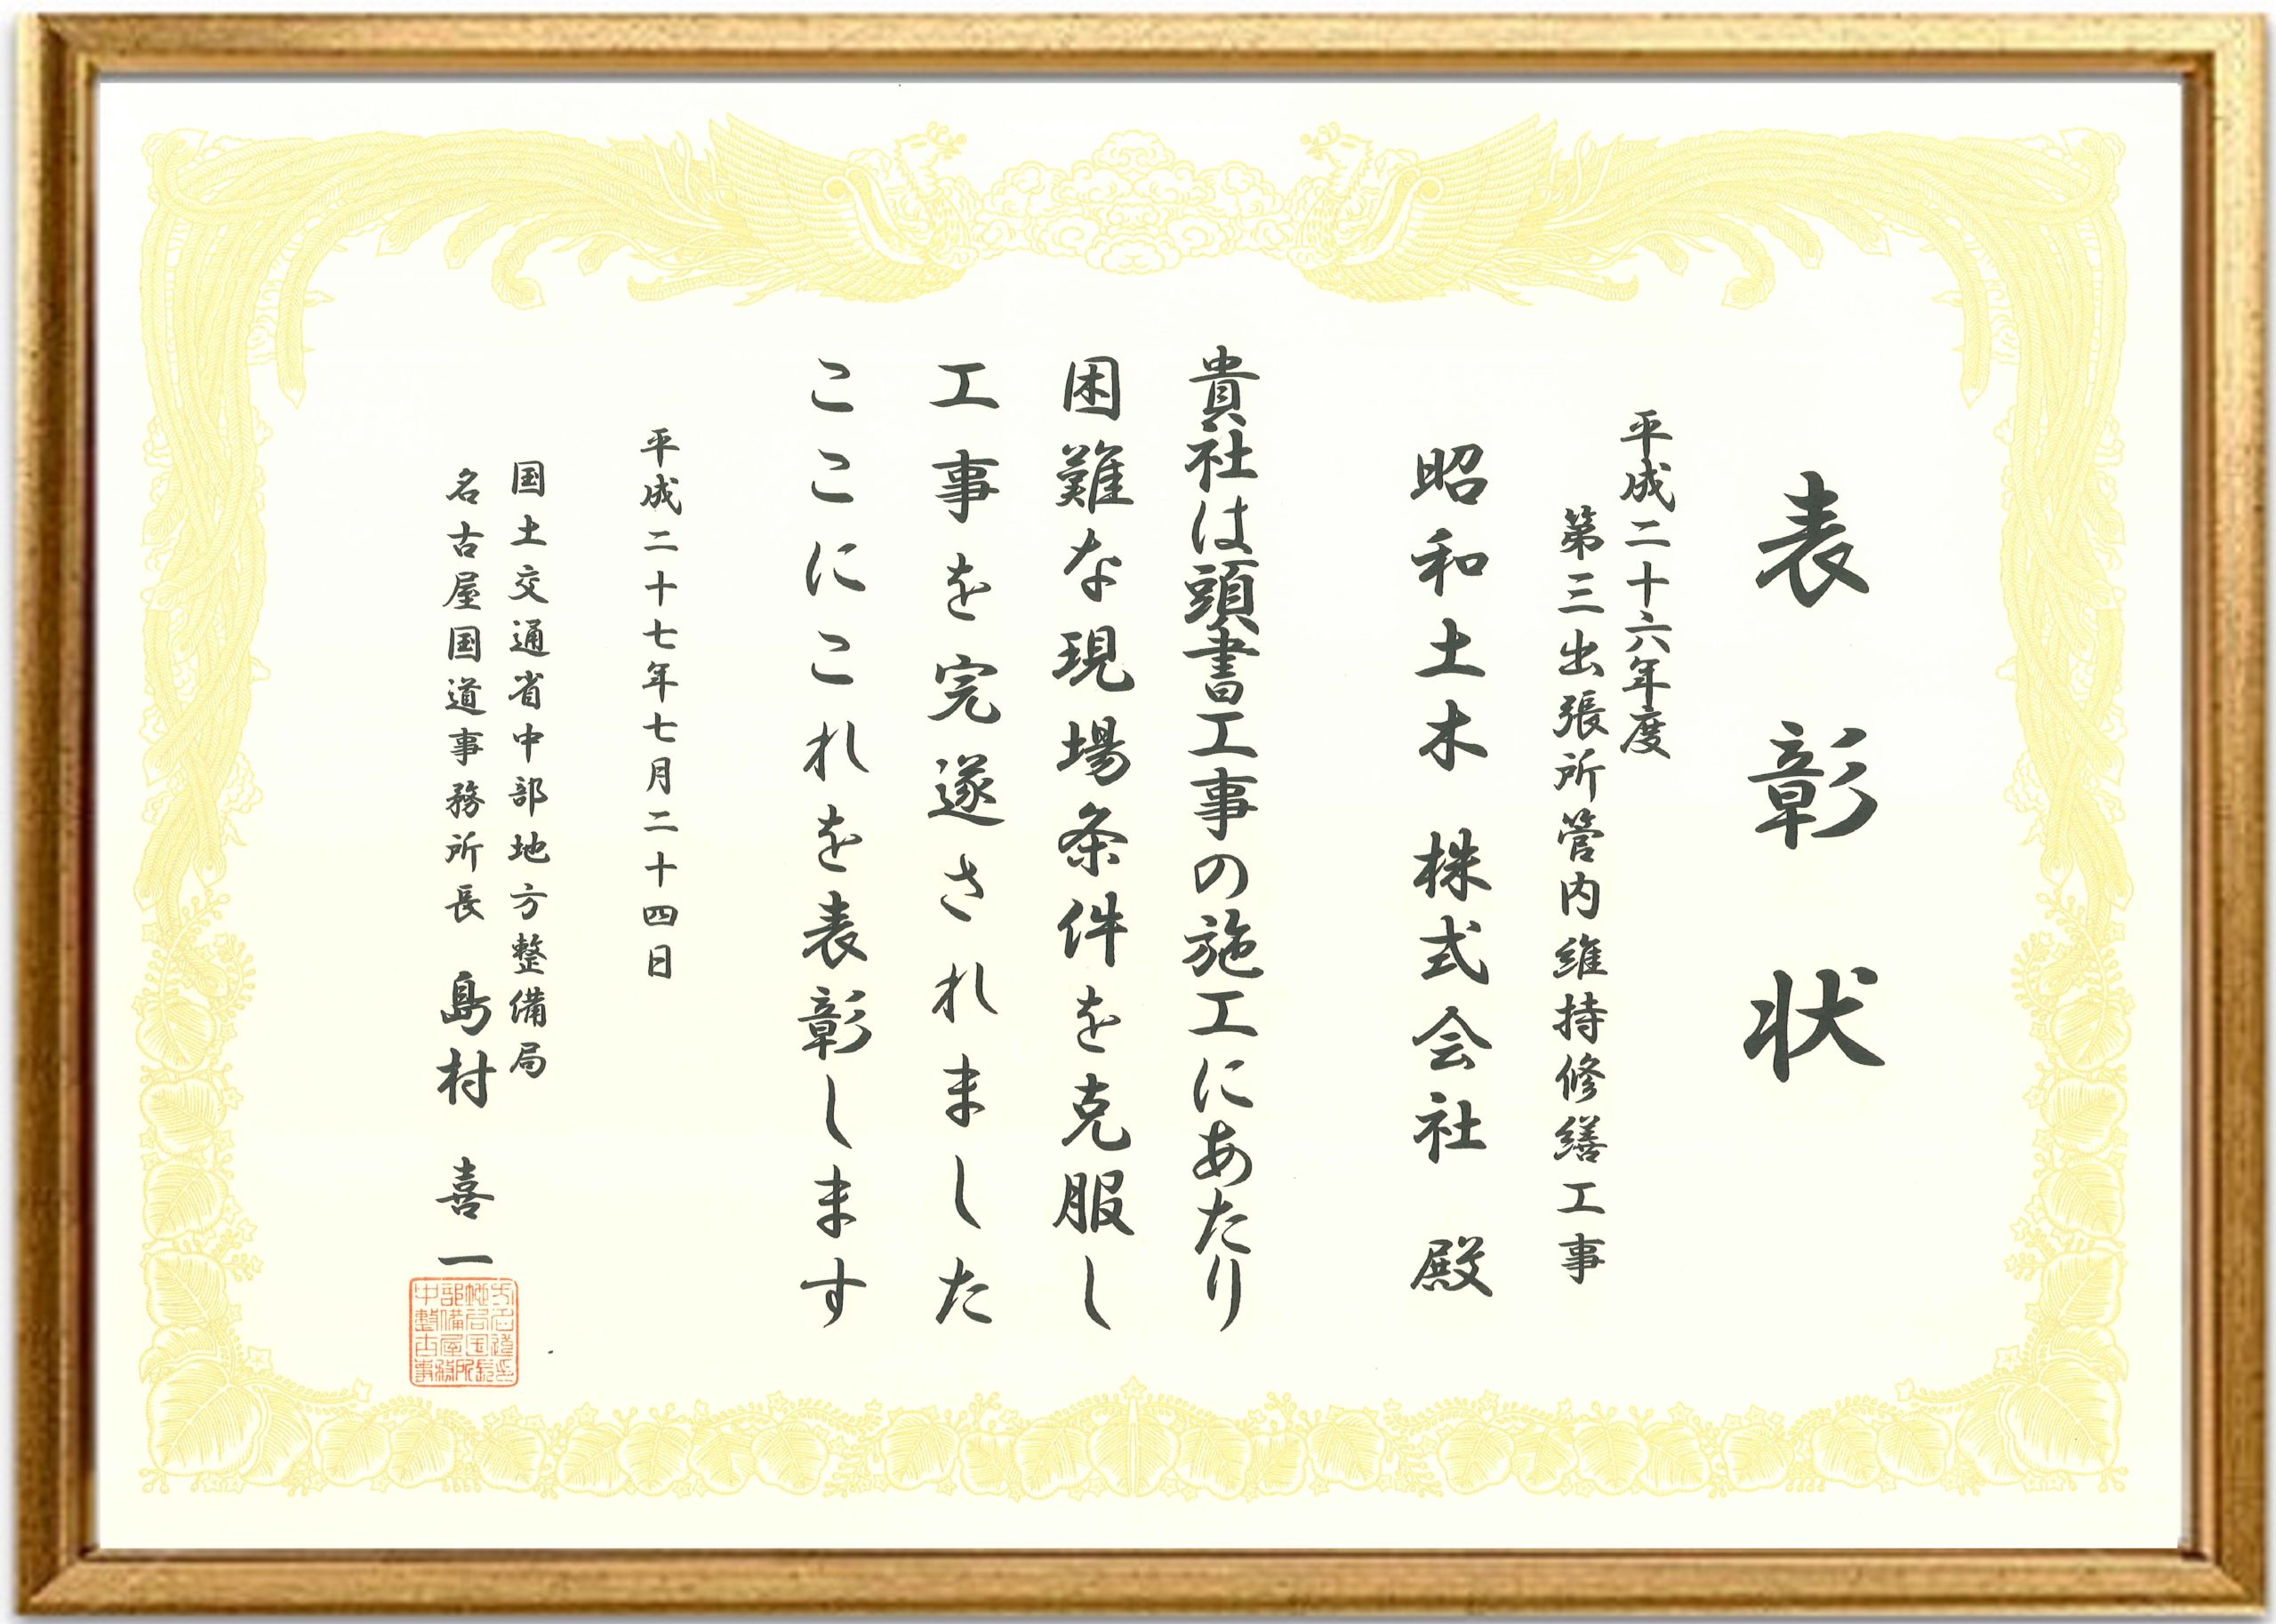 表彰状
平成二十六年度
第三出張所管内維持修繕工事
昭和土木 株式会社 殿
貴社は頭書工事の施工にあたり
困難な現場条件を克服し
工事を完遂されました
ここにこれを表彰します
平成二十七年七月二十四日
国土交通省中部地方整備局
名古屋国道事務所長 島村 喜一